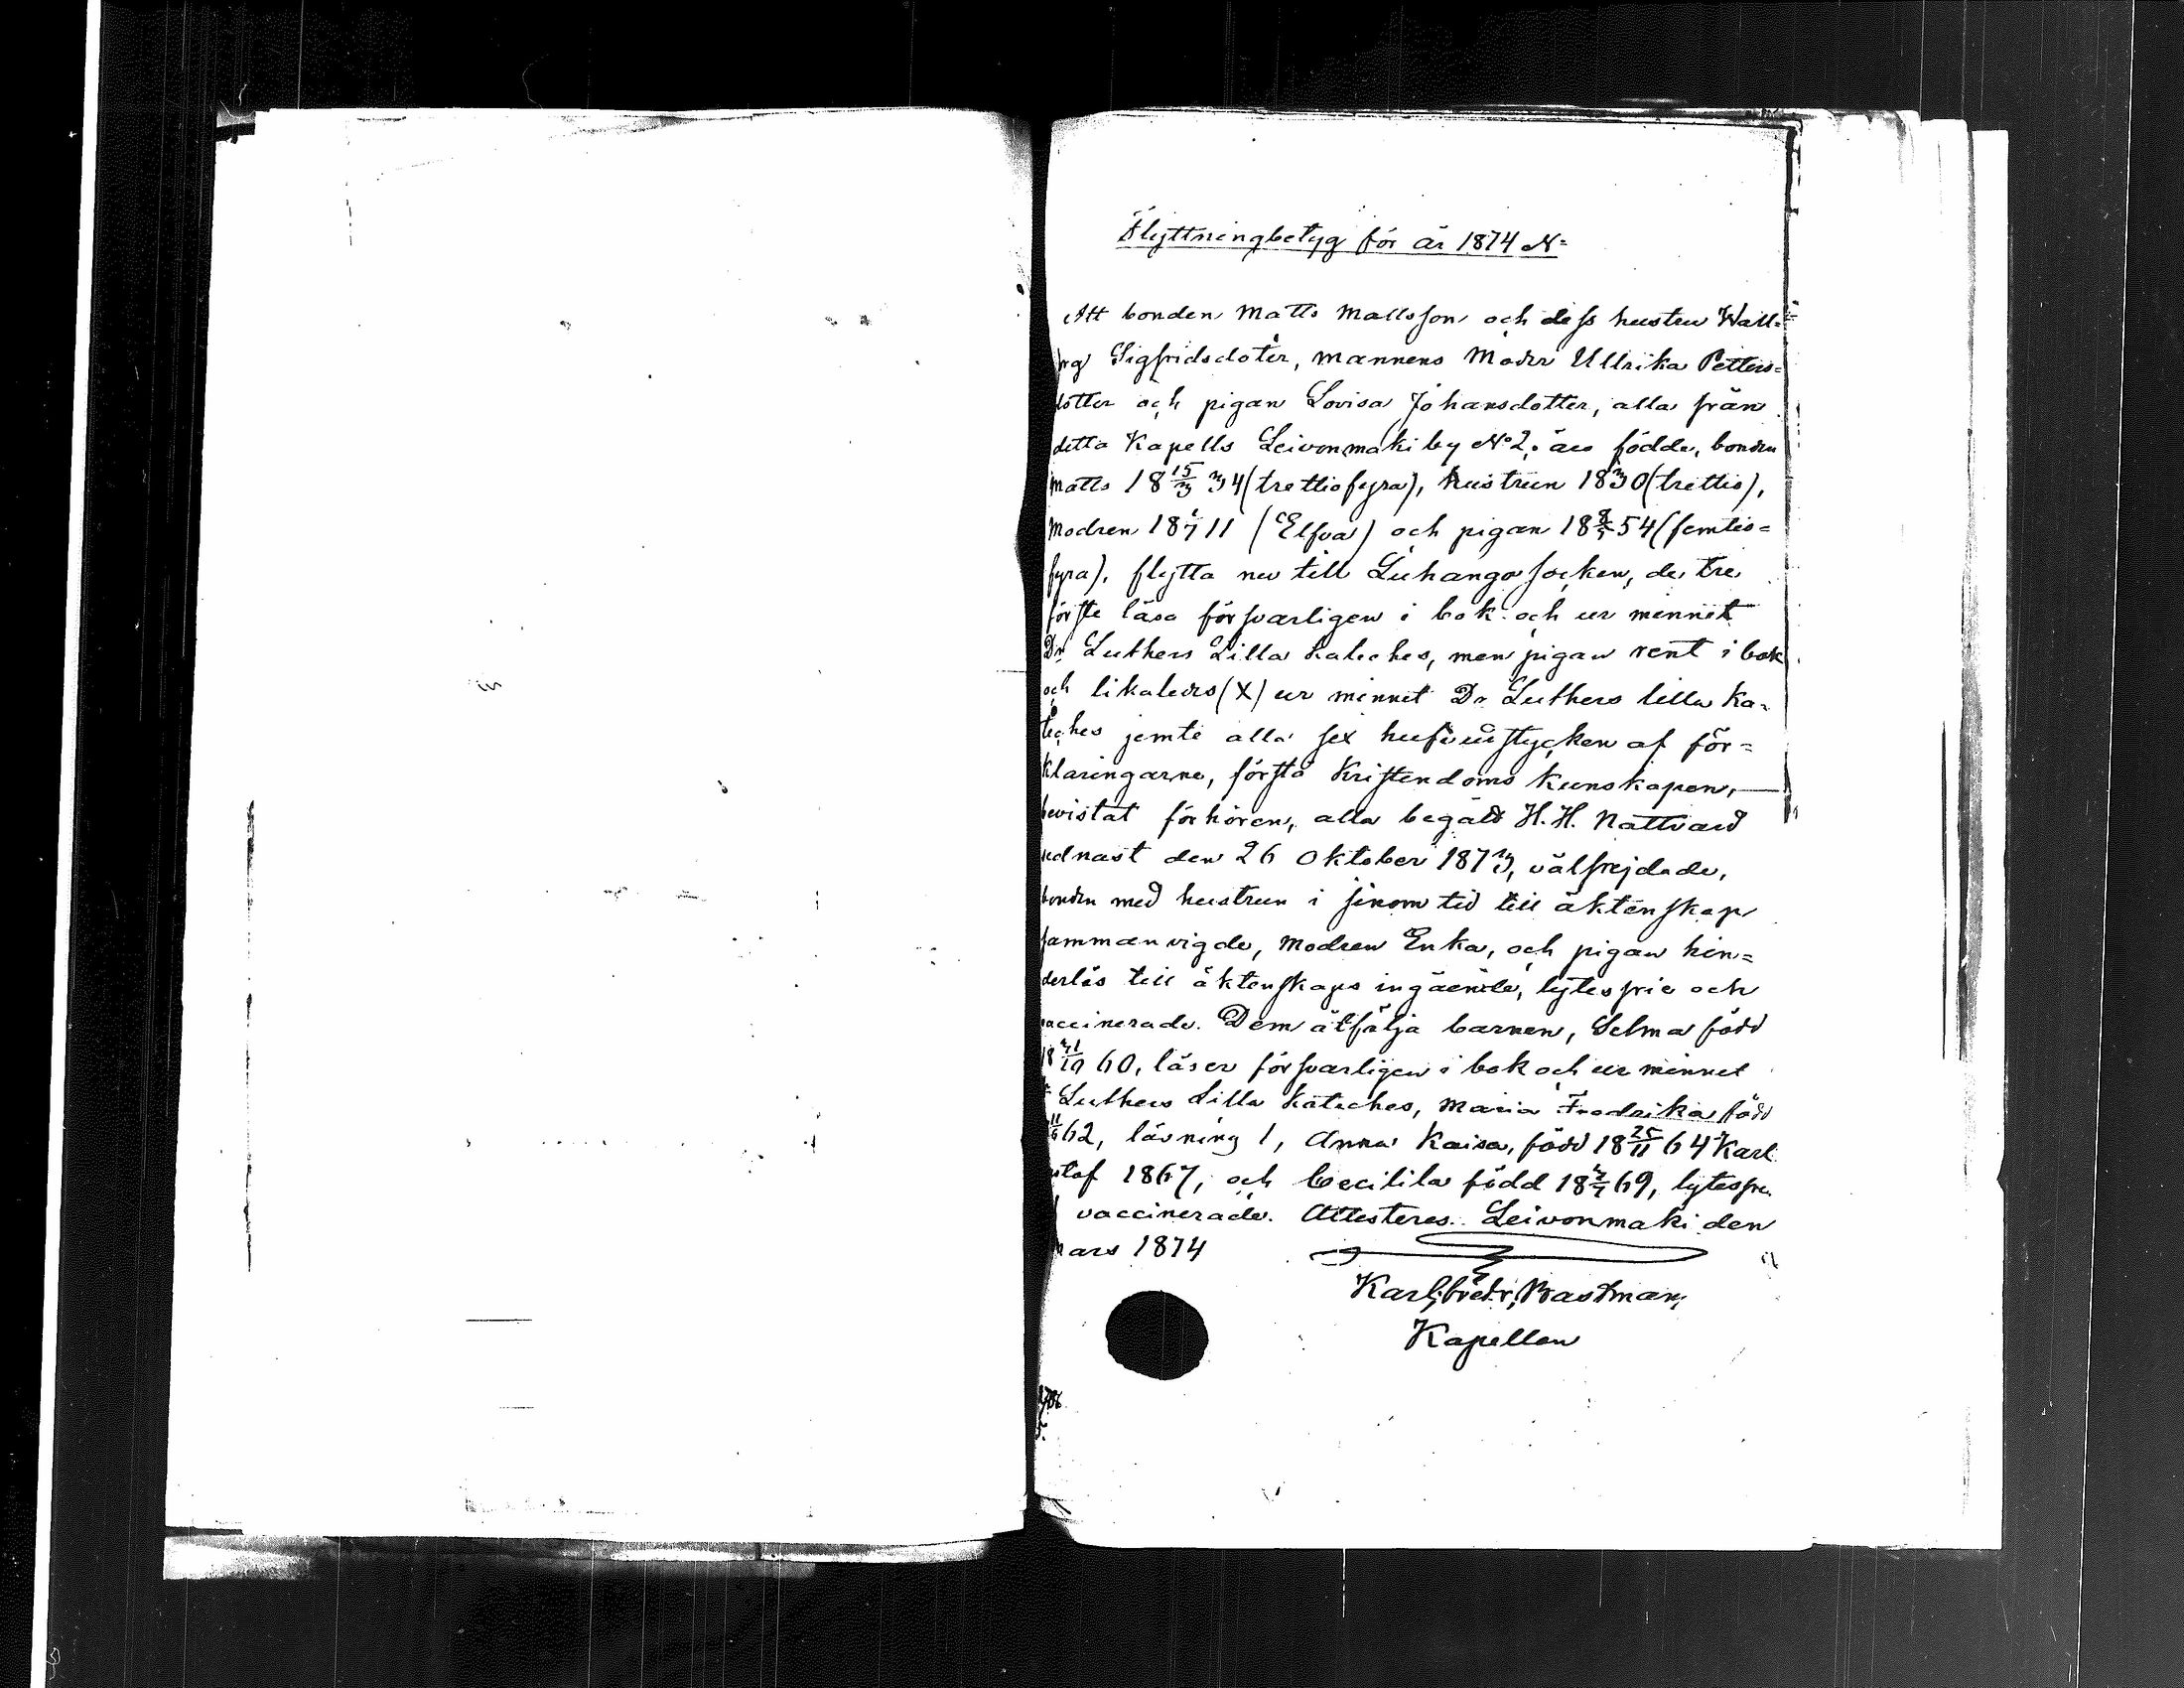 Flyttningbetyg för år 1874 N=
Att bonden Matts Mattsson och dess hustru Wall=
rg Sigfridsdoter, mannens Moder Ullrika Petters=
dotter och pigan Lovisa Johansdotter, alla från
detta Kapells Leivonmäki by No 2, äro födde, bonden
Matts 18 15/3 34 (trettiofyra), hustrun 1830 (trettio),
Modren 18 1/7 11 (Elfva) och pigan 18 8/5 54 (femtio=
fyra), flytta nu till Luhango socken, de tre
förste läsa försvarligen i bok och ur minnet
Dr Luthers Lilla Kateches, men pigan rent i bok
och likaledes (X) ur minnet Dr Luthers lilla Ka=
teches jemte alla sex hufvudstycken af för=
klaringarne, förstå Kristendoms kunskapen,
bevistat förhören, alla begått H. H. Nattvard
sednast den 26 Oktober 1873, välfrejdade,
bonden med hustrun i sinom tid till äktenskap
sammanvigde, Modren Enka, och pigan hin=
derlös till äktenskaps ingående, lytesfrie och
vaccinerade. Dem åtfölja barnen, Selma född
18 31/10 60, läser försvarligen i bok och ur minnet
Luthers Lilla Kateches, Maria Fredrika född
11/6 62, läsning 1, Anna Kaisa, född 18 25/11 64 Karl
stof 1867, och Cecilila född 18 2/7 69, lytesfri
vaccinerade. Attesteras. Leivonmäki den
Mars 1874
Karl Fredr. Bastman,
Kapellan